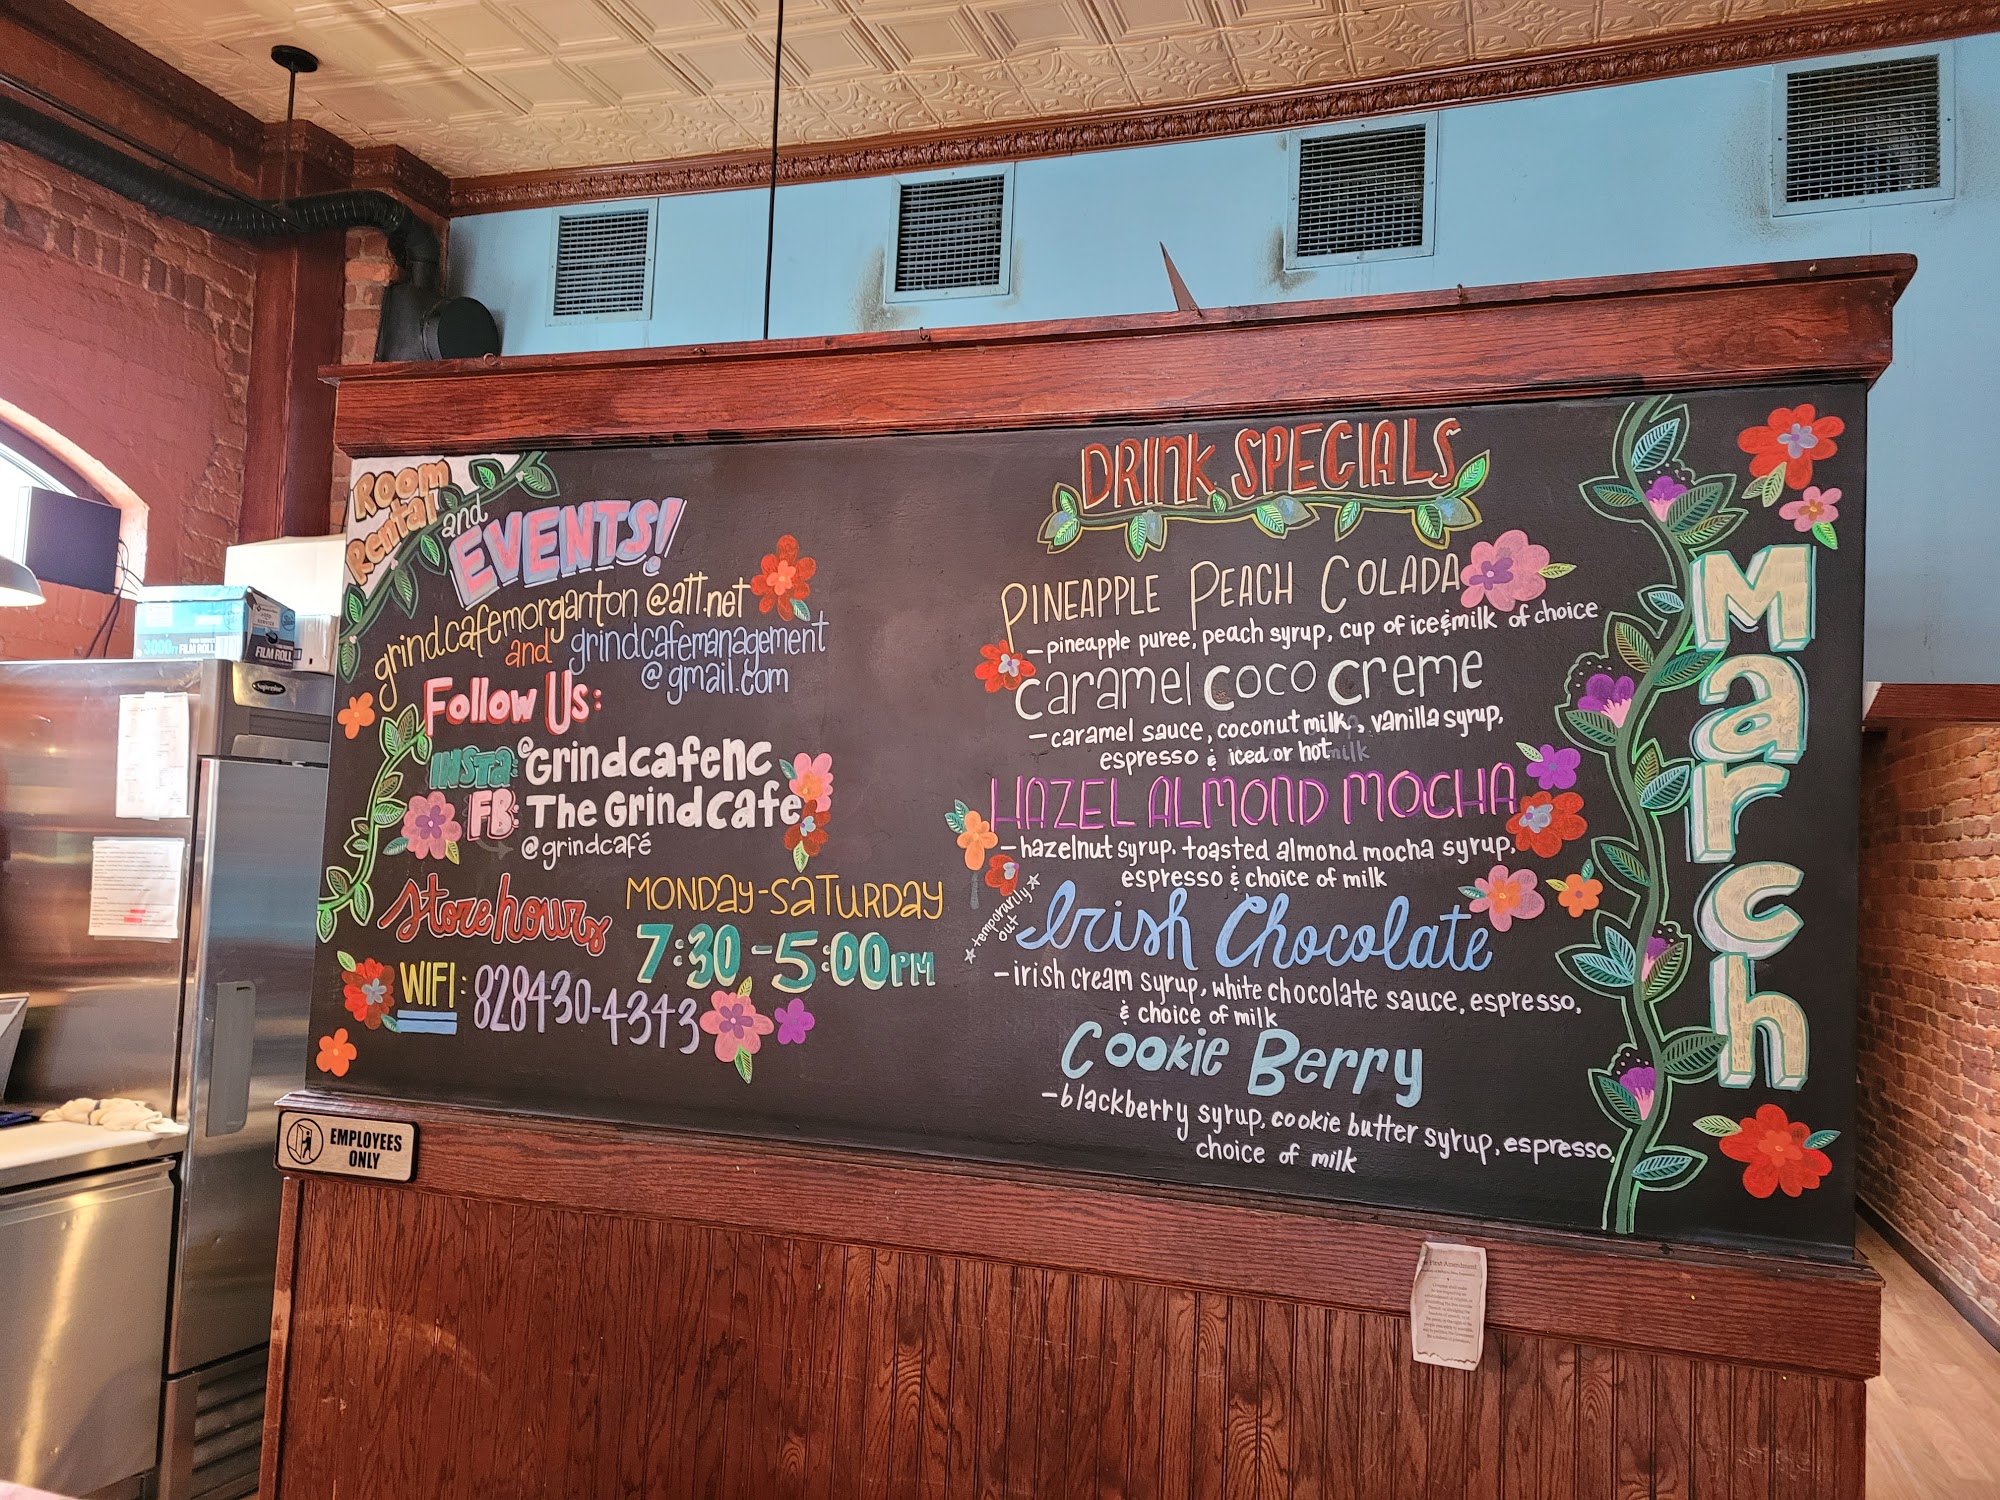 Room
Rental
and
EVENTS!
grindcafemorganton@att.net
and grindcafemanagement
@gmail.com
Follow Us:
INSTA: @Grindcafenc
FB: The Grind Cafe
@grindcafé
store hours
MONDAY-SATURDAY
7:30-5:00PM
WIFI: 828430-4343
DRINK SPECIALS
PINEAPPLE PEACH COLADA
-pineapple puree, peach syrup, cup of ice & milk of choice
caramel coco creme
-caramel sauce, coconut milk, vanilla syrup,
espresso & iced or hot milk
HAZEL ALMOND MOCHA
-hazelnut syrup. toasted almond mocha syrup,
espresso & choice of milk
temporarily
out
Irish Chocolate
-irish cream syrup, white chocolate sauce, espresso,
& choice of milk
Cookie Berry
-blackberry syrup, cookie butter syrup, espresso,
choice of milk
March
EMPLOYEES
ONLY
3000FT FILM ROLL
FILM ROLL
Superior
First Amendment